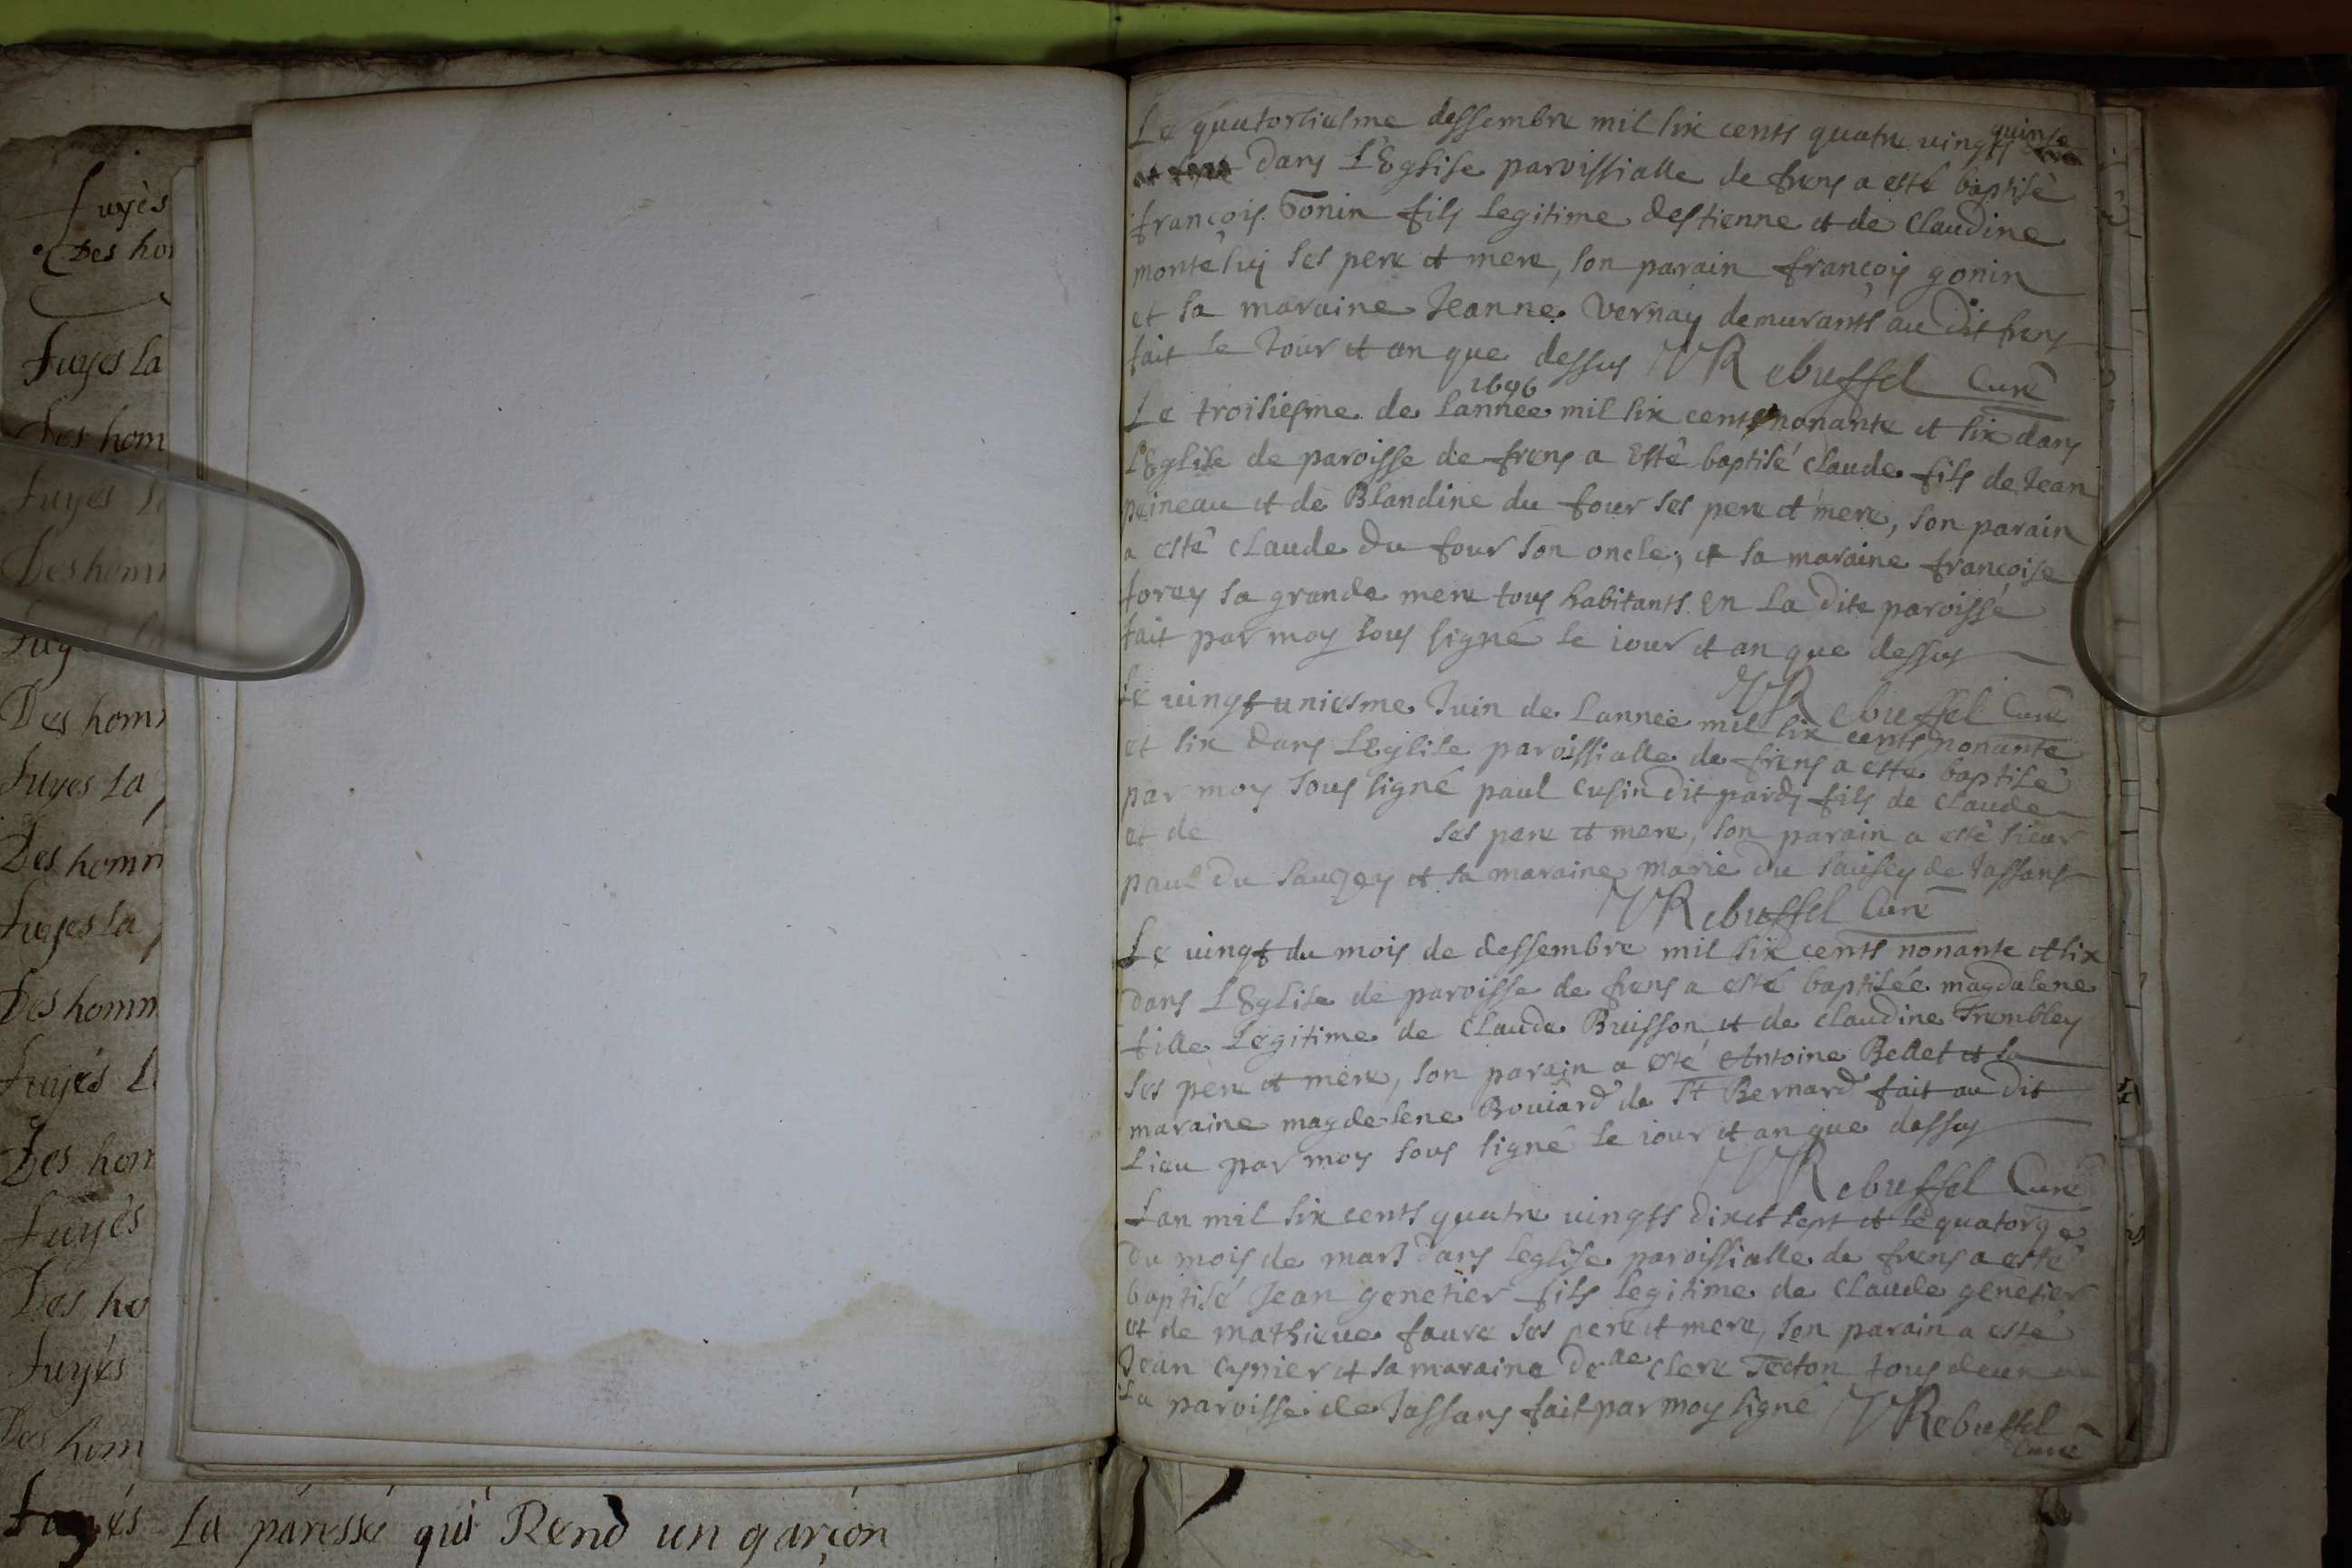 fuyès
Des hom
fuyes la
Des hom
fuyes l
Des homm
Des homm
fuyes la
Des homm
fuyes la
Des homm
fuyés l
Des hom
fuyès
Des ho
fuyés
Des hom
fuyés la páressé qui Rend un garçon
Le quatorsiesme dessembre mil six cents quatre vingts quinse
dans l'Eglise paroissialle de frens a esté baptisé
françois Gonin fils legitime destienne et de claudine
monteluy ses pere et mere, son parain françois gonin
et sa maraine Jeanne Vernay demurants au dit frens
fait le Jour et an que dessus Rebuffel Curé
1696
Le troisiesme de lannee mil six cents nonante et six dans
l'Eglise de paroisse de frens a Esté baptisé claude fils de Jean
peineau et de Blandine du four ses pere et mere, son parain
a esté claude du four son oncle, et sa maraine françoise
forey sa grande mere tous habitants en la dite paroisse
fait par moy sous signé le iour et an que dessus
Rebuffel Curé
Le vingt uniesme Juin de lannee mil six cents nonante
et six dans l'Eglise paroissialle de frens a esté baptisé
par moy sous signé paul cusin dit pardy fils de claude
et de ses pere et mere, son parain a esté sieur
paul du sauzey et sa maraine marie du sausey de Jassans
Rebuffel Curé
Le vingt du mois de dessembre mil six cents nonante et six
dans L'Eglise de paroisse de frens a esté baptisée magdalene
fille Legitime de claude Buisson et de claudine Trembley
ses pere et mere, son parain a esté Antoine Bellet et sa
maraine magdelene Bouiard de St Bernard fait au dit
Lieu par moy sous signé le iour et an que dessus
Rebuffel Curé
Lan mil six cents quatre vingts dixet sept et le quatorze
du mois de mars dans leglise paroissialle de frens a esté
baptisé Jean genetier fils legitime de claude genetier
et de mathieue faure ses pere et mere, son parain a esté
Jean cynier et sa maraine delle clere Tecton tous deux
La paroisse de Jassans fait par moy signé Rebuffel
Curé